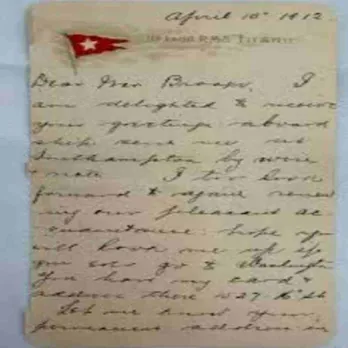 April 10th 1912
On board R.M.S. Titanic
Dear Mrs I
am delighted to receive
your greetings aboard
ship sent me at
Southampton by wire
& note I too look
forward to again renew
ing our pleasant ac
quaintance. hope you
will look me up if
you go to Washington
You have my card &
address there 1527 16 St
Let me know your
permanent address in